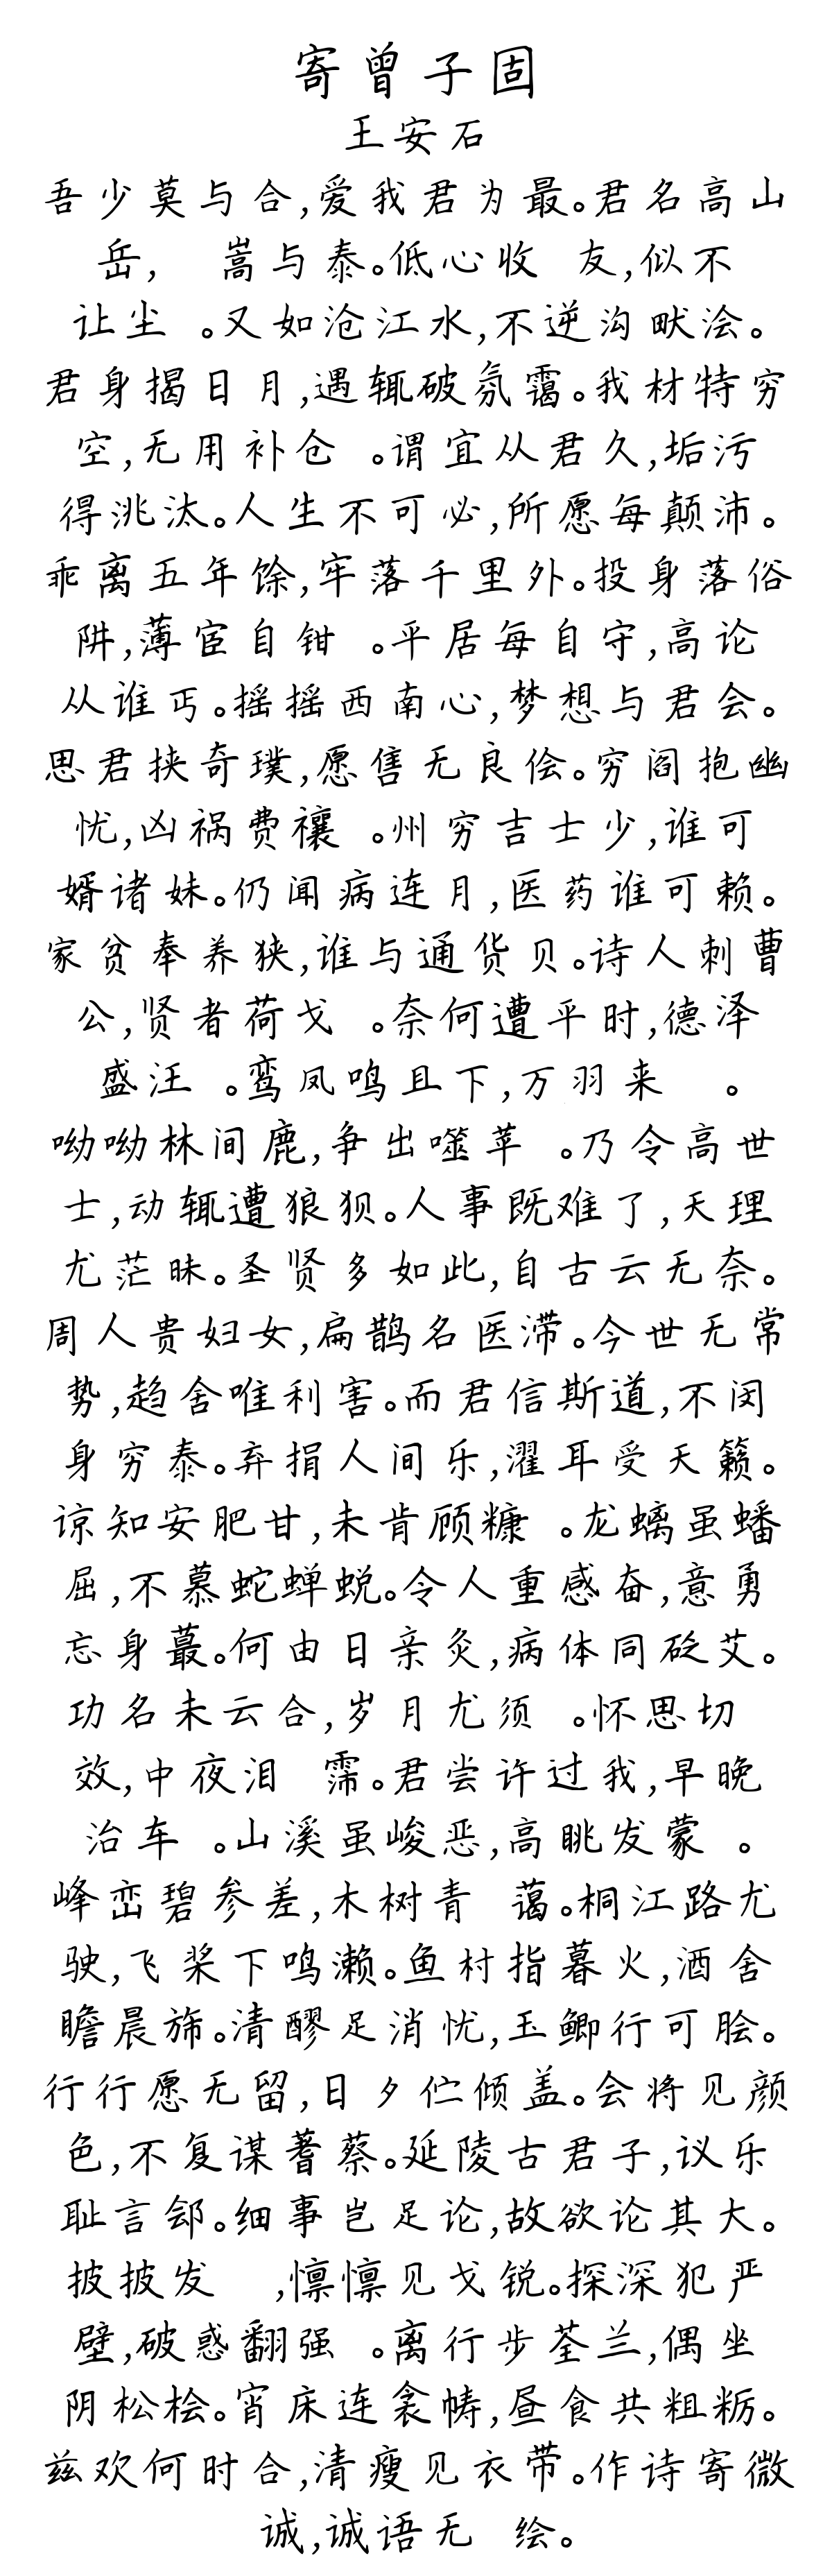 寄曾子固
王安石
吾少莫与合,爱我君为最。君名高山
岳, 嵩与泰。低心收 友,似不
让尘 。又如沧江水,不逆沟畎浍。
君身揭日月,遇辄破氛霭。我材特穷
空,无用补仓 。谓宜从君久,垢污
得洮汰。人生不可必,所愿每颠沛。
乖离五年馀,牢落千里外。投身落俗
阱,薄宦自钳 。平居每自守,高论
从谁丐。摇摇西南心,梦想与君会。
思君挟奇璞,愿售无良侩。穷阎抱幽
忧,凶祸费禳 。州穷吉士少,谁可
婿诸妹。仍闻病连月,医药谁可赖。
家贫奉养狭,谁与通货贝。诗人刺曹
公,贤者荷戈 。奈何遭平时,德泽
盛汪 。鸾凤鸣且下,万羽来 。
呦呦林间鹿,争出噬苹 。乃令高世
士,动辄遭狼狈。人事既难了,天理
尤茫昧。圣贤多如此,自古云无奈。
周人贵妇女,扁鹊名医滞。今世无常
势,趋舍唯利害。而君信斯道,不闵
身穷泰。弃捐人间乐,濯耳受天籁。
谅知安肥甘,未肯顾糠 。龙螭虽蟠
屈,不慕蛇蝉蜕。令人重感奋,意勇
忘身蕞。何由日亲炙,病体同砭艾。
功名未云合,岁月尤须 。怀思切
效,中夜泪 霈。君尝许过我,早晚
治车 。山溪虽峻恶,高眺发蒙 。
峰峦碧参差,木树青 蔼。桐江路尤
驶,飞桨下鸣濑。鱼村指暮火,酒舍
瞻晨旆。清醪足消忧,玉鲫行可脍。
行行愿无留,日夕伫倾盖。会将见颜
色,不复谋蓍蔡。延陵古君子,议乐
耻言郐。细事岂足论,故欲论其大。
披披发 ,懔懔见戈锐。探深犯严
壁,破惑翻强 。离行步荃兰,偶坐
阴松桧。宵床连衾帱,昼食共粗粝。
兹欢何时合,清瘦见衣带。作诗寄微
诚,诚语无 绘。